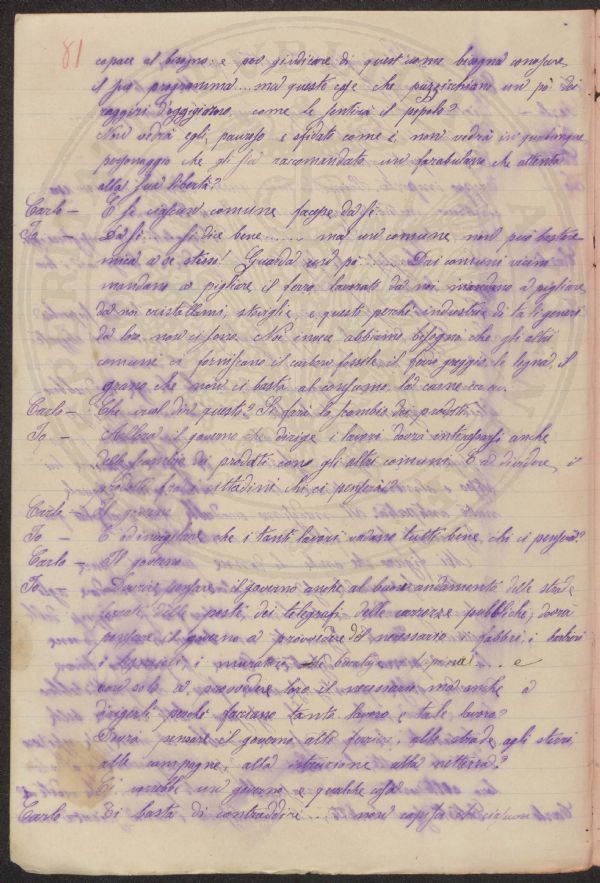 81
capace al bisogno: e per giudicare di quest'uomo bisogna conoscere
il suo programma... ma queste cose che puzzicchiano un pò dei
raggiri d'oggigiorno, come le sentirà il popolo?
Non vedrà egli, pauroso e sfidato come è, non vedrà in qualunque
personaggio che gli sia raccomandato un farabutto che attenta
alla sua libertà?
Carlo — E se ciascun comune facesse da sè.
Io — Da sè... si dice bene...... ma un comune non può bastare
mica a se stesso! Guarda un pò. Dai comuni vicini
mandano a pigliare il ferro lavorato da noi mandano a pigliare
da noi cristallami, stoviglie, e questi perchè industrie di tali generi
da loro non ci sono. Noi invece abbiamo bisogno che gli altri
comuni ci forniscano il carbone fossile, il ferro greggio, le legna, il
grano che non ci basta al consumo, la carne ecc.
Carlo — Che vuol dir questo? Si farà lo scambio dei prodotti.
Io — Allora il governo che dirige i lavori dovrà interessarsi anche
dello scambio dei prodotti cono gli altri comuni. E a dividere i
prodotti fra i cittadini chi ci penserà?
Carlo — Il governo.
Io — E ad invigilare che i tanti lavori vadano tutti bene, chi ci penserà?
Carlo — Il governo
Io — Dovrà pensare il governo anche al buon andamento delle strade
ferrate, delle poste, dei telegrafi, delle carrozze pubbliche; dovrà
pensare il governo a provvedere del necessario i fabbri, i barbieri
i muratori, e
non solo a provvedere loro il necessario ma anche a
dirigerli perchè facciano tanto lavoro e tale lavoro?
Dovrà pensare il governo alle strade, agli
alle campagne, alla istruzione alla nettezza?
Ci vuole un governo e qualche cosa
Carlo — Ti basta di contraddire... non capisci che ciascun